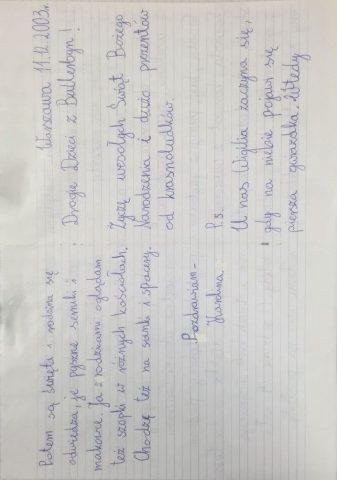 Warszawa 11.12.2003r.
Drogie Dzieci z Bullerbyn!
Życzę wesołych Świąt Bożego
Narodzenia i dużo prezentów
od krasnoludków.
P.s.
U nas Wigilia zaczyna się,
gdy na niebie pojawi się
piersza gwiazdka. Wtedy
Potem są święta i rodzina się
odwiedza, je pyszne serniki i
makowce. Ja z rodzicami oglądam
też szopki w różnych kościołach.
Chodzę też na sanki i spacery.
Pozdrawiam-